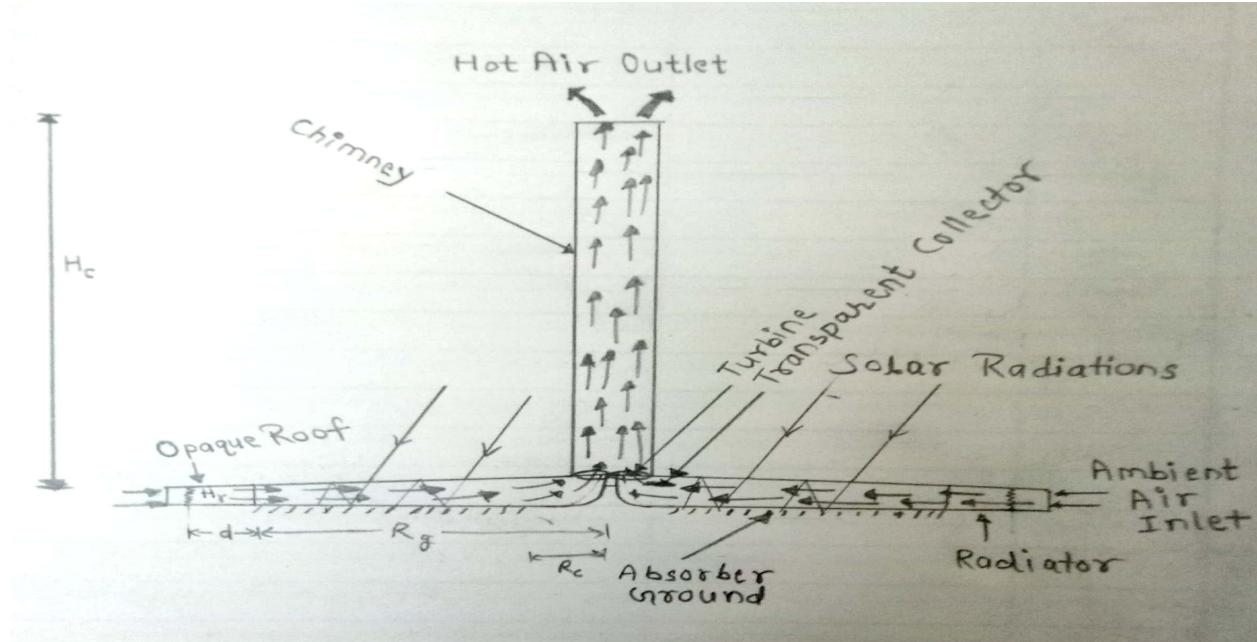 Hot Air Outlet
Chimney
Hc
Turbine
Transparent Collector
Solar Radiations
Opaque Roof
Hr
Ambient
Air
Inlet
d
Rg
Rc
Absorber
Ground
Radiator